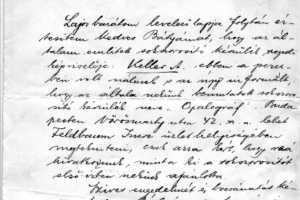 Lajos barátom levelezőlapja folytán ér-
tesítem Kedves Bátyámat, hogy az ál-
talam említett sokszorosító készülék szegedi
képviselője: Keller A. ebben a perc-
ben volt nálunk s az úgy informált
hogy az általa nekünk bemutatott sokszoro-
sító készülék neve: Opalograf. Buda
pesten Vörösmarty utca 42. sz. a. lakot
Feldbaum Imre üzlethelyiségében
megtekinteni, csak arra kért, hogy reá
hivatkozzunk, mint a ki a sokszorosítót
első ízben nekünk ajánlotta.
Szíves engedelmét és bocsánatát ké-